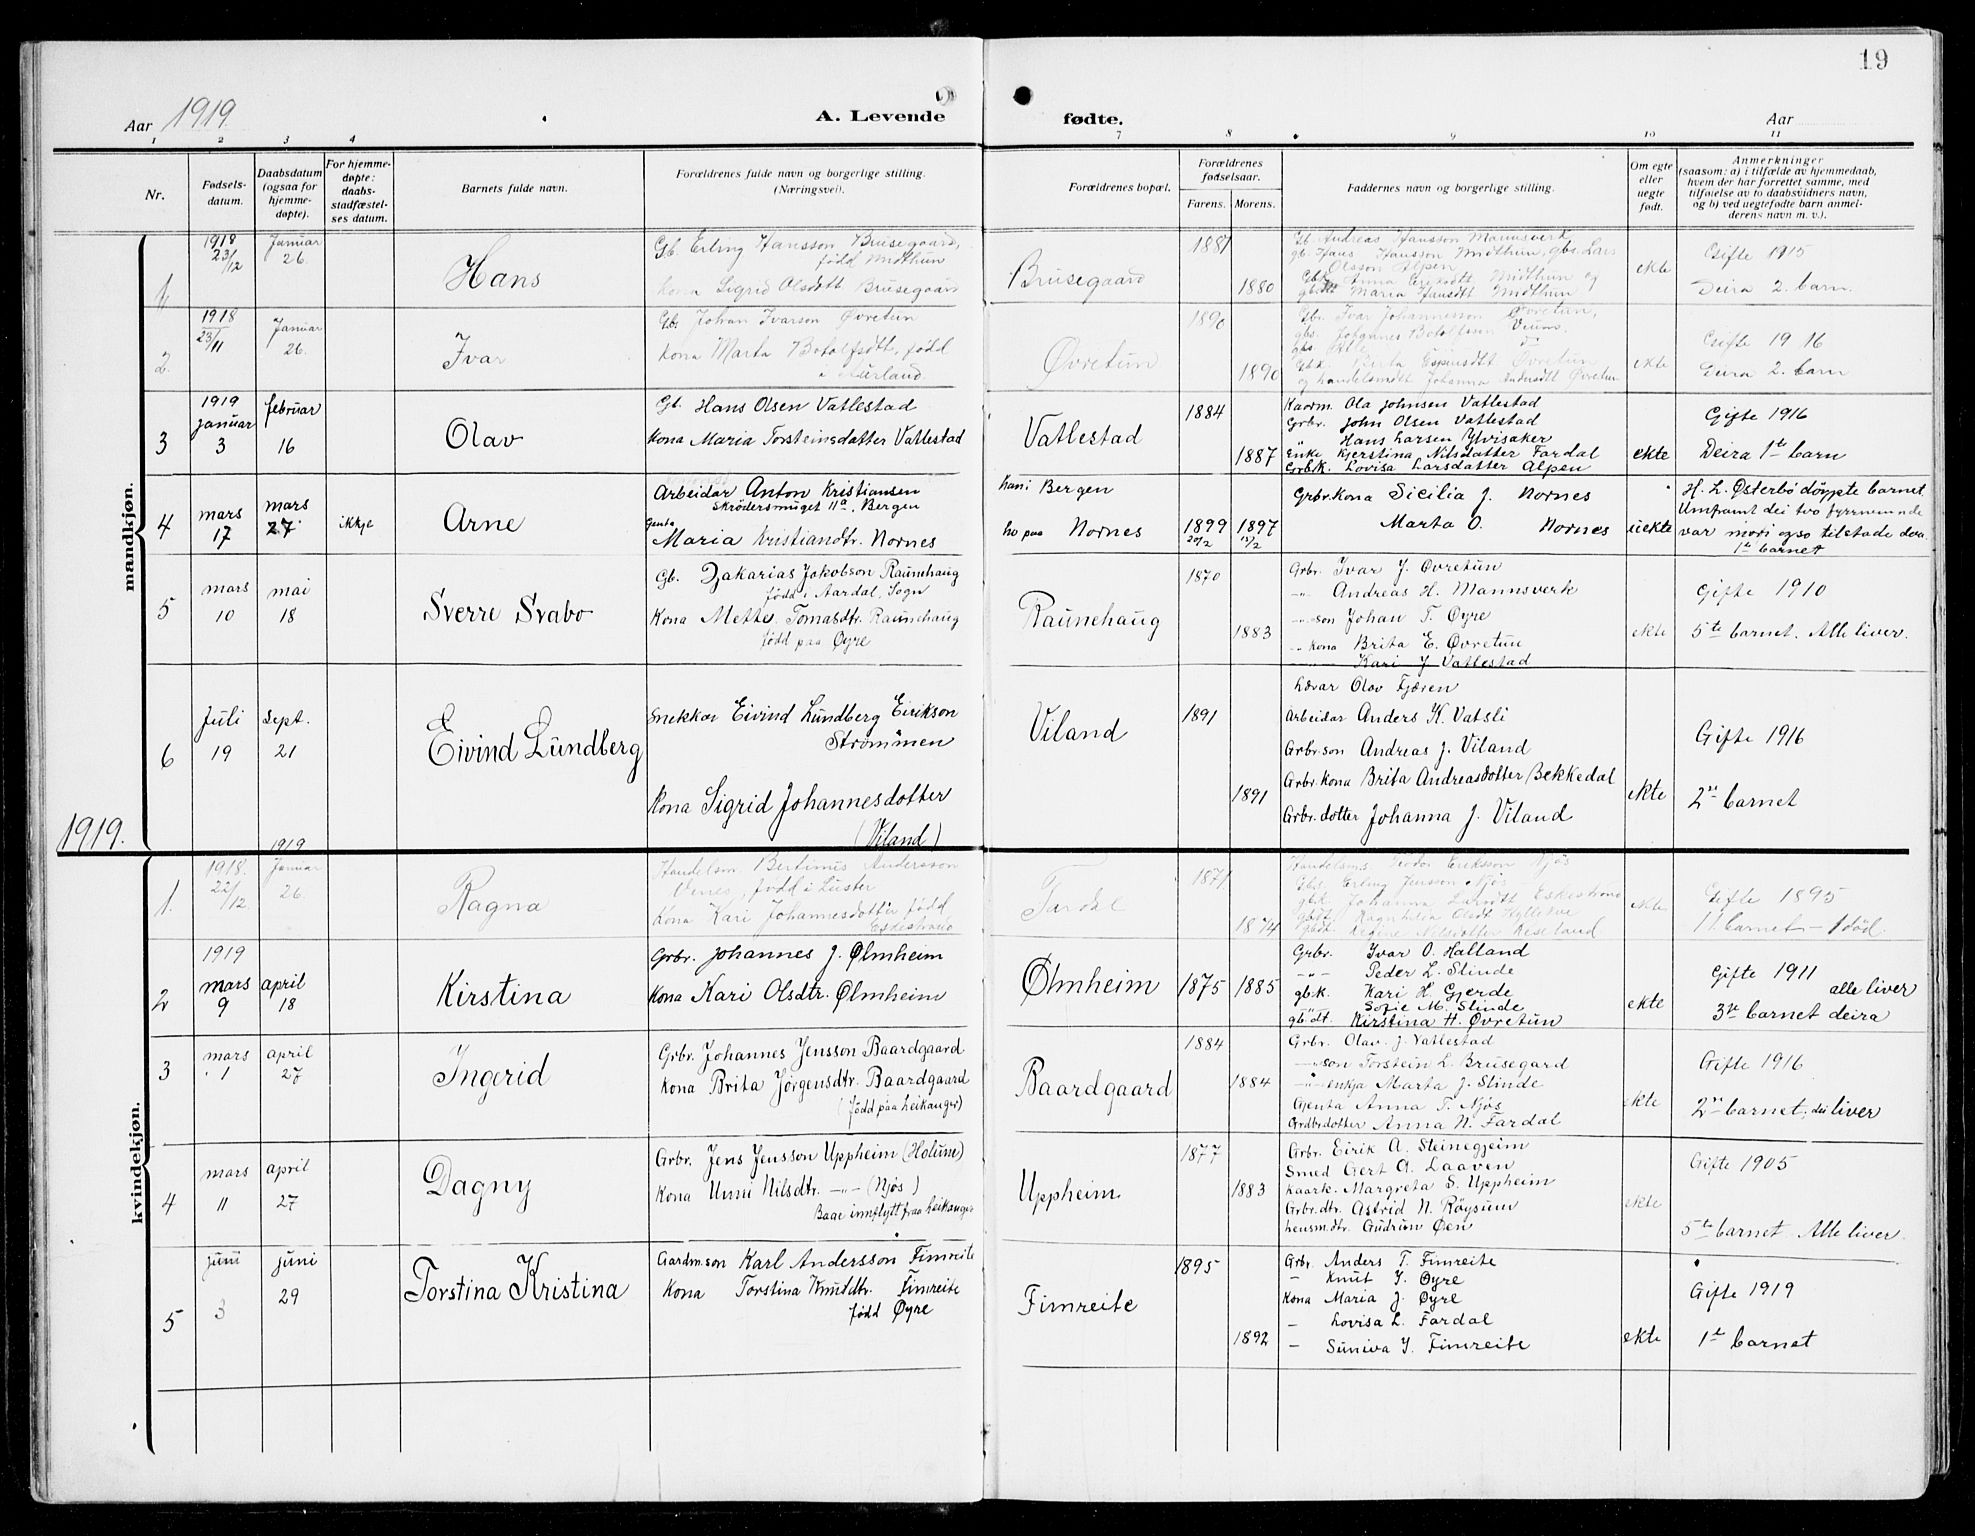 19
Aar 1919.
A. Levende
fødte.
Aar
1 2 3 4 7 8 9 10 11
Nr.
Fødsels-
datum.
Daabsdatum
(ogsaa for
hjemme-
døpte).
For hjemme-
døpte:
daabs-
stadfæstel-
ses datum.
Barnets fulde navn.
Forældrenes fulde navn og borgerlige stilling.
(Næringsvei).
Forældrenes bopæl.
Forældrenes
fødselsaar.
Farens. Morens.
Faddernes navn og borgerlige stilling.
Om egte
eller
uegte
født.
Anmerkninger
(saasom: a) i tilfælde av hjemmedaab,
hvem der har forrettet samme, med
tilføielse av to daabsvidners navn,
og b) ved uegtefødte barn anmel-
derens navn m. v.).
mandkjøn.
1
1918
23/12
Januar
26.
Hans
Gb. Erling Hansson Brusegaard,
född Midthun
Kona Sigrid Olsdtt Brusegaard
Brusegaard
1881
1880
Gb. Andreas Hansson Mannsverk
gb. Hans Hansson Midthun, gbs. Lars
Olsson Alpen
Gbk. Anna Eriksdtt Midthun og
Maria Hansdtt Midthun
ekte
Gifte 1915
Deira 2. barn.
2.
1918
23/11
Januar
26.
Ivar
Gbr. Johan Ivarson Øvretun
Kona Marta Botolfsdtt, född
i Aurland.
Øvretun
1890
1890
Gbr. Ivar Johannesson Øvretun,
gbs. Johannes Botolfssen
Gbk. Brita Espesdtt Øvretun
og handelsmdtt Johanna Andersdtt Øvretun
ekte
Gifte 1916
Deira 2. barn
3
1919
januar
3
februar
16
Olav
Gb. Hans Olsen Vatlestad
Kona Maria Torsteinsdatter Vatlestad
Vatlestad
1884
1887
Kaarm. Ola Johnsen Vatlestad
Grbr. John Olsen Vatlestad
Hans Larsen Ylvisaker
Enke Kjerstina Nilsdatter Fardal
Grbrk. Lovisa Larsdatter Alpen
ekte
Gifte 1916
Deira 1te barn
4
mars
17
mars
27.
ikkje
Arne
Arbeidar Anton Kristiansen
Skrödersmuget 11a, Bergen
Gjenta
Maria Kristiandtr. Nornes
han i Bergen
ho paa Nornes
1899
20/2
1897
Grbr.kona Sicilia J. Nornes
Marta O. Nornes
uekte
H. L. Østerbö döypte barnet
Umframt dei tvo fyrrnemnde
var mori ogso tilstade dera
1te barnet
5
mars
10
mai
18
Sverre Svabo
Gb. Zakarias Jakobson Raunehaug
född i Aardal, Sogn
Kona Mette Tomasdtr. Raunehaug
född paa Øyre
Raunehaug
1870
1883
Grbr. Ivar J. Øvretun
-"- Andreas H. Mannsverk
-"-son Johan T. Øyre
-"- kona Brita E. Øvretun
Kari J Vatlestad
ekte
Gifte 1910
5te barnet. Alle liver.
6
Juli
19
Sept.
21
Eivind Lundberg
Snekkar Eivind Lundberg Eirikson
Strömmen
Kona Sigrid Johannesdotter
(Viland)
Viland
1891
1891
Lærar Olav Fjæren
Arbeidar Anders K. Vatsli
Grbr.son Andreas J. Viland
Grbr.kona Brita Andreasdotter Bekkedal
Grbr.dotter Johanna J. Viland
ekte
Gifte 1916
2re barnet
1919.
kvindekjøn.
1.
1918.
22/12
1919
Januar
26.
Ragna
Handelsm. Bertinus Andersson
Venes, född i Luster
Kona Kari Johannesdotter född
Eskestrand
Fardal
1871
1874
Handelsm. Eriksson Njös
Gbs. Erling Jensson Njös
gbk. Johanna Larsdtt Eskestrand
gbdt. Ragnhild Olsdt Hyllekve
gbdt. Regine Nilsdotter Keseland
ekte
Gifte 1895
11. barnet - 1 död.
2
1919
mars
9
april
18
Kirstina
Grbr. Johannes J. Ølmheim
Kona Kari Olsdtr. Ølmheim
Ølmheim
1875
1885
Grbr. Ivar O. Halland
-"- Peder L. Slinde
gb.k. Kari H. Gjerde
Sofie M. Slinde
gb.dt. Kirstina H. Øvretun
ekte
Gifte 1911
alle liver
3re barnet deira
3
mars
1
april
27
Ingerid
Grbr. Johannes Jensson Baardgaard
Kona Brita Jørgensdtr. Baardgaard
(född paa Leikanger)
Baardgaard
1884
1884
Grbr. Olav J. Vatlestad
-"-son Torstein L. Brusegard
-"- enkja Marta J. Slinde
Gjenta Anna T. Njös
Grdbrdotter Anna N. Fardal
ekte
Gifte 1916
2re barnet, dei liver
4
mars
11
april
27
Dagny
Grbr. Jens Jensson Uppheim (Holum)
Kona Unni Nilsdtr. -"- (Njös)
Baae innflytt fraa Leikanger
Uppheim
1877
1883
Grbr. Eirik A. Steinegjeim
Smed Gert A. Laaven
Kaark. Margreta S. Uppheim
Grbr.dtr. Astrid N. Röysum
hensm.dtr. Gudrun Øen
ekte
Gifte 1905
5te barnet. Alle liver.
5
juni
3
juni
29
Torstina Kristina
Gardm.son Karl Andersson Fimreite
Kona Torstina Knutdtr. Fimreite
född Øyre
Fimreite
1895
1892
Grbr. Anders T. Fimreite
- Knut J. Øyre
Kona Maria J. Øyre
- Lovisa L. Fardal
- Suniva J. Fimreite
ekte
Gifte 1919
1te barnet